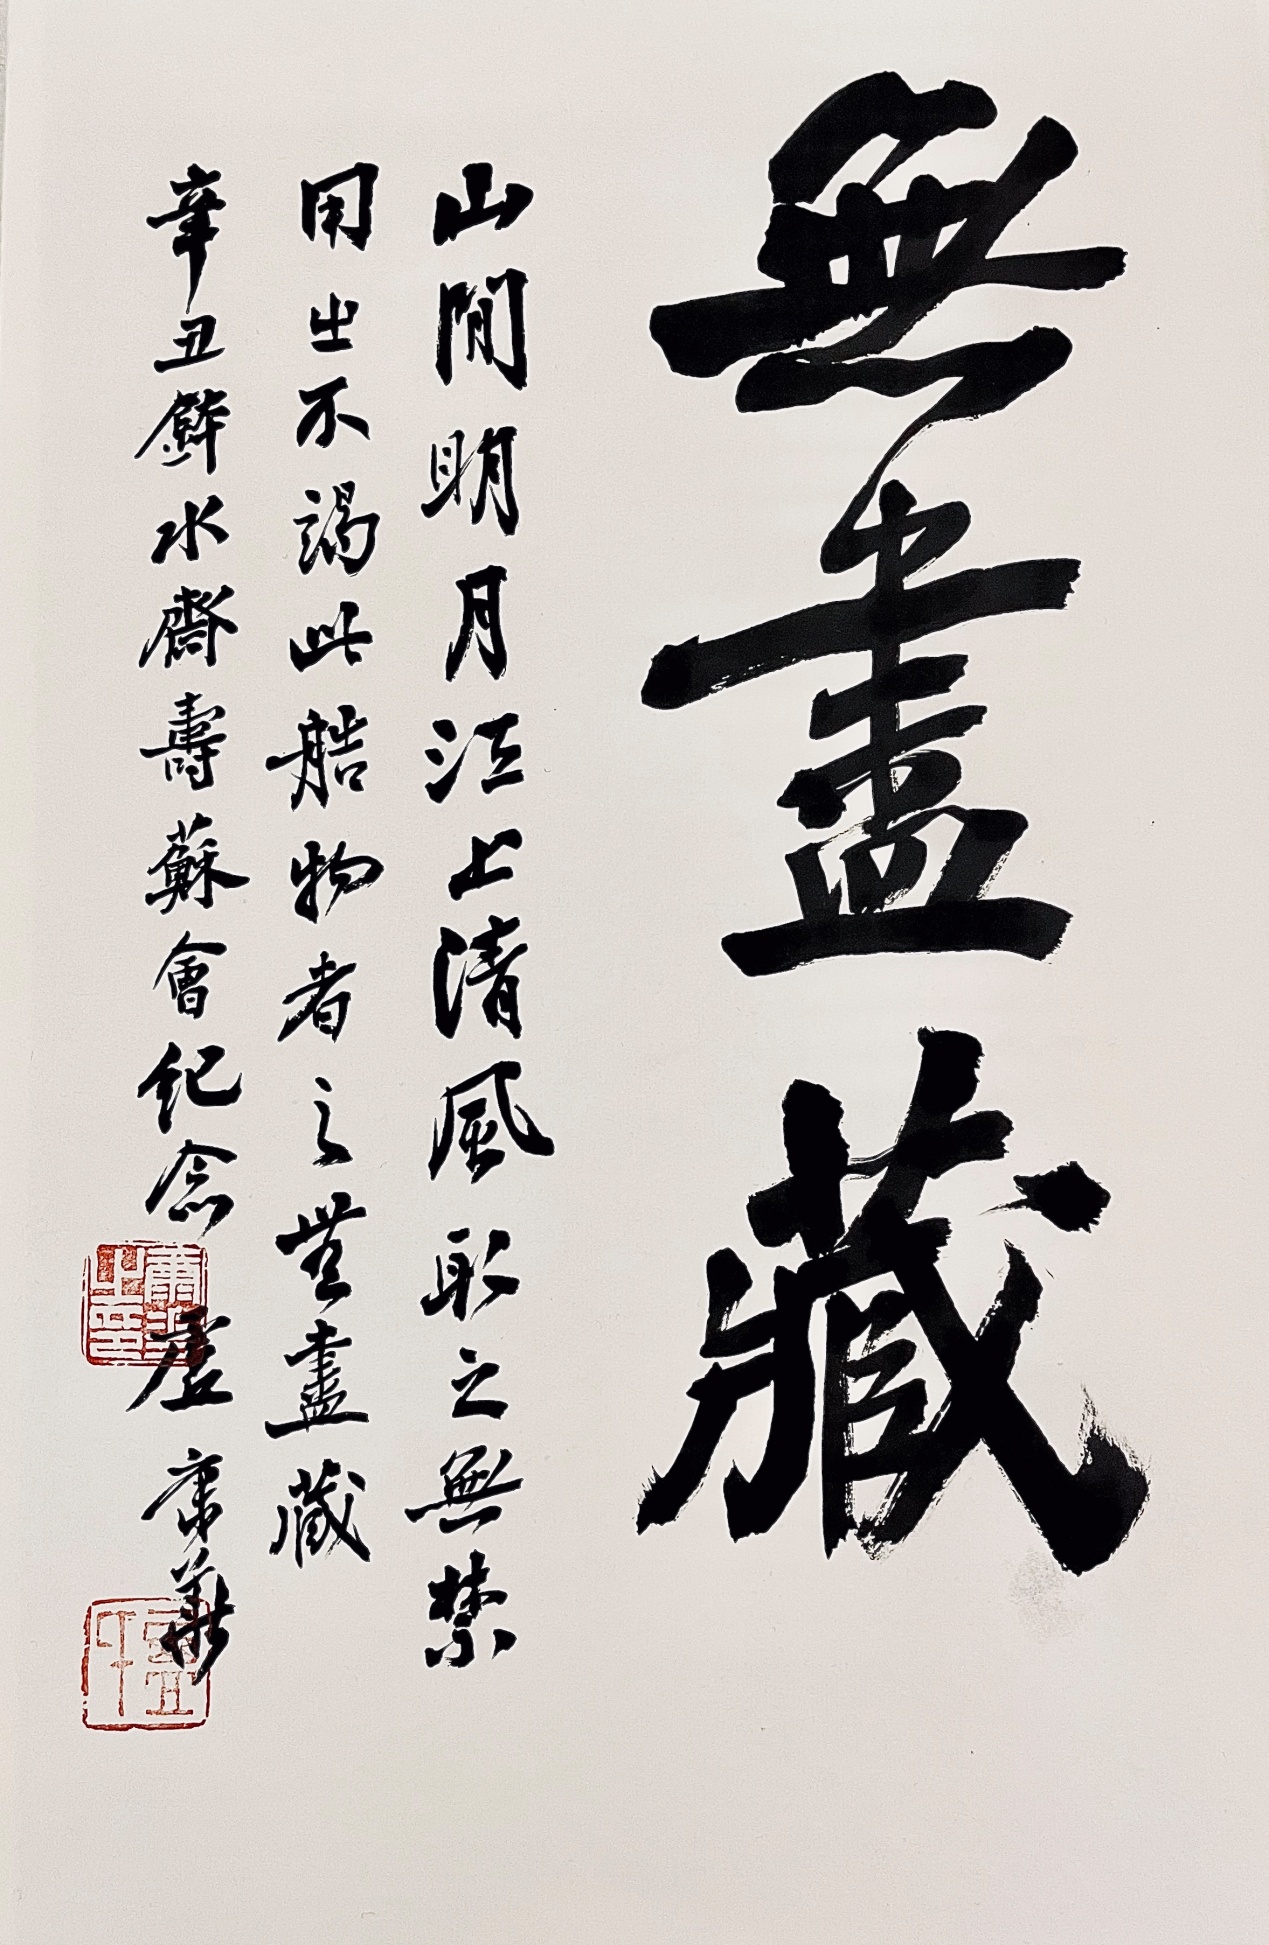 無盡藏
山間明月江上清風取之無禁
用之不竭此造物者之無盡藏
辛丑缾水齋壽蘇會紀念
康華